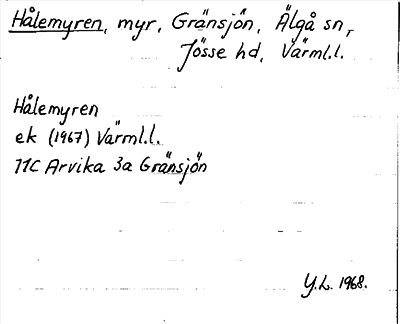 Hålemyren, myr, Gränsjön, Älgå sn,
Jösse hd, Värml.l.
Hålemyren
ek (1967) Värml.l.
11C Arvika 3a Gränsjön
Y.L. 1968.